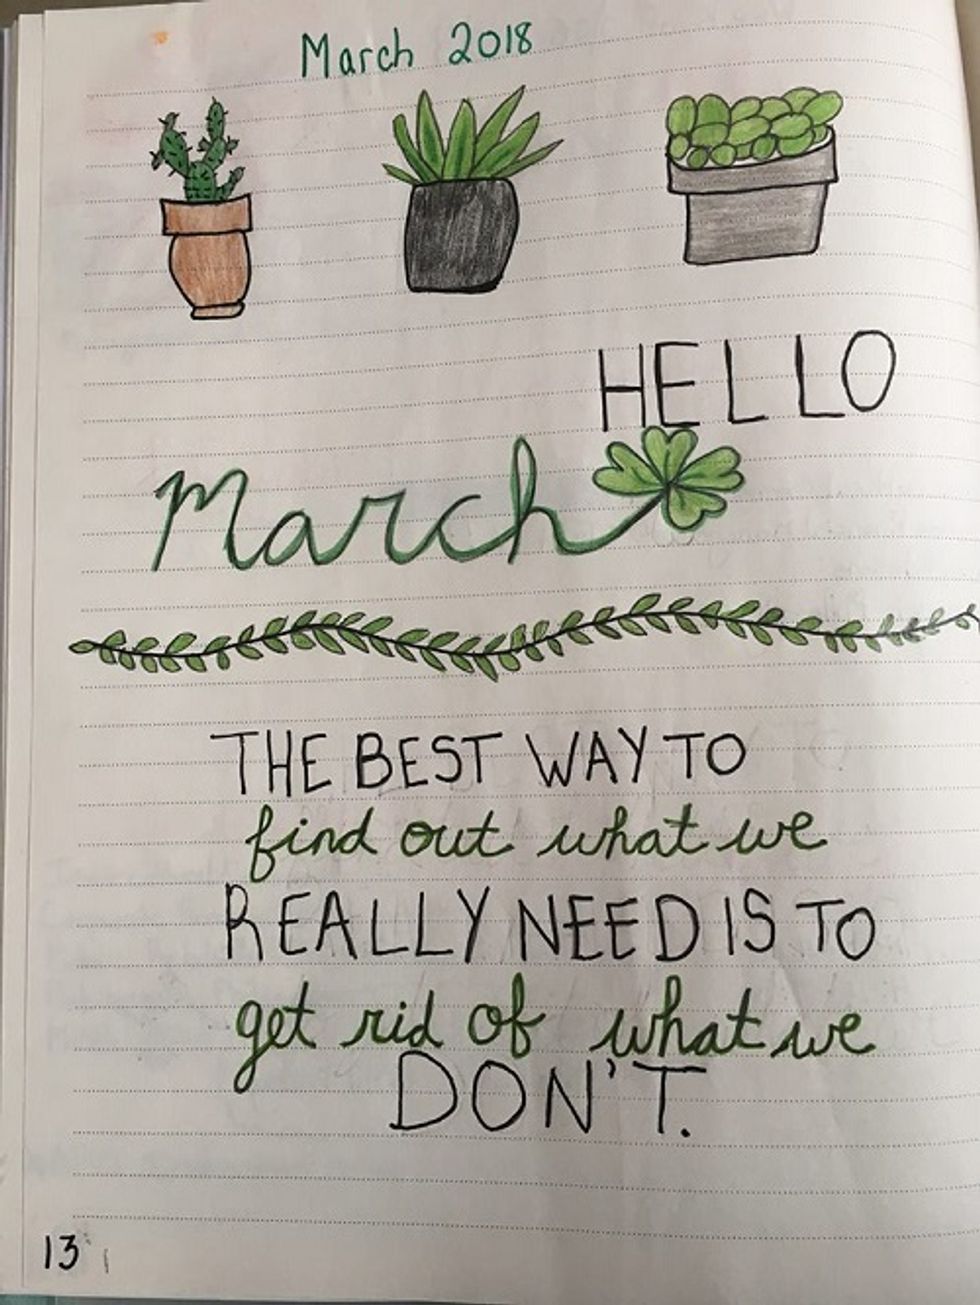 March 2018
HELLO
March
THE BEST WAY TO
find out what we
REALLY NEED IS TO
get rid of what we
DON'T.
13